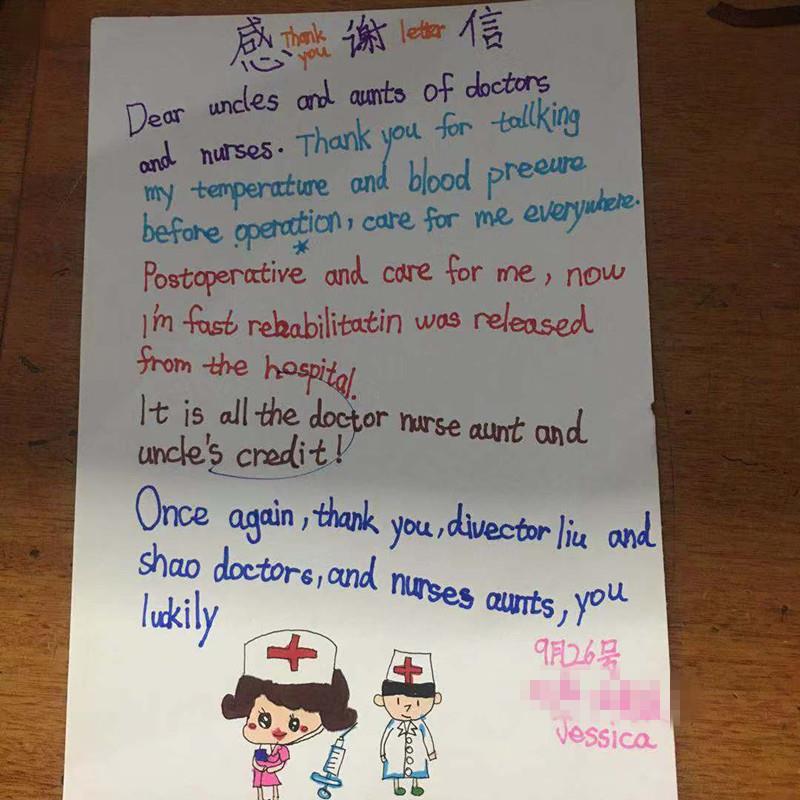 感 Thank you 谢 letter 信
Dear uncles and aunts of doctors
and nurses. Thank you for tallking
my temperature and blood preeure
before operation, care for me everywhere.
Postoperative and care for me, now
I'm fast rehabilitatin was released
from the hospital.
It is all the doctor nurse aunt and
uncle's credit!
Once again, thank you, divector liu and
shao doctors, and nurses aunts, you
luckily
9月26号
Jessica